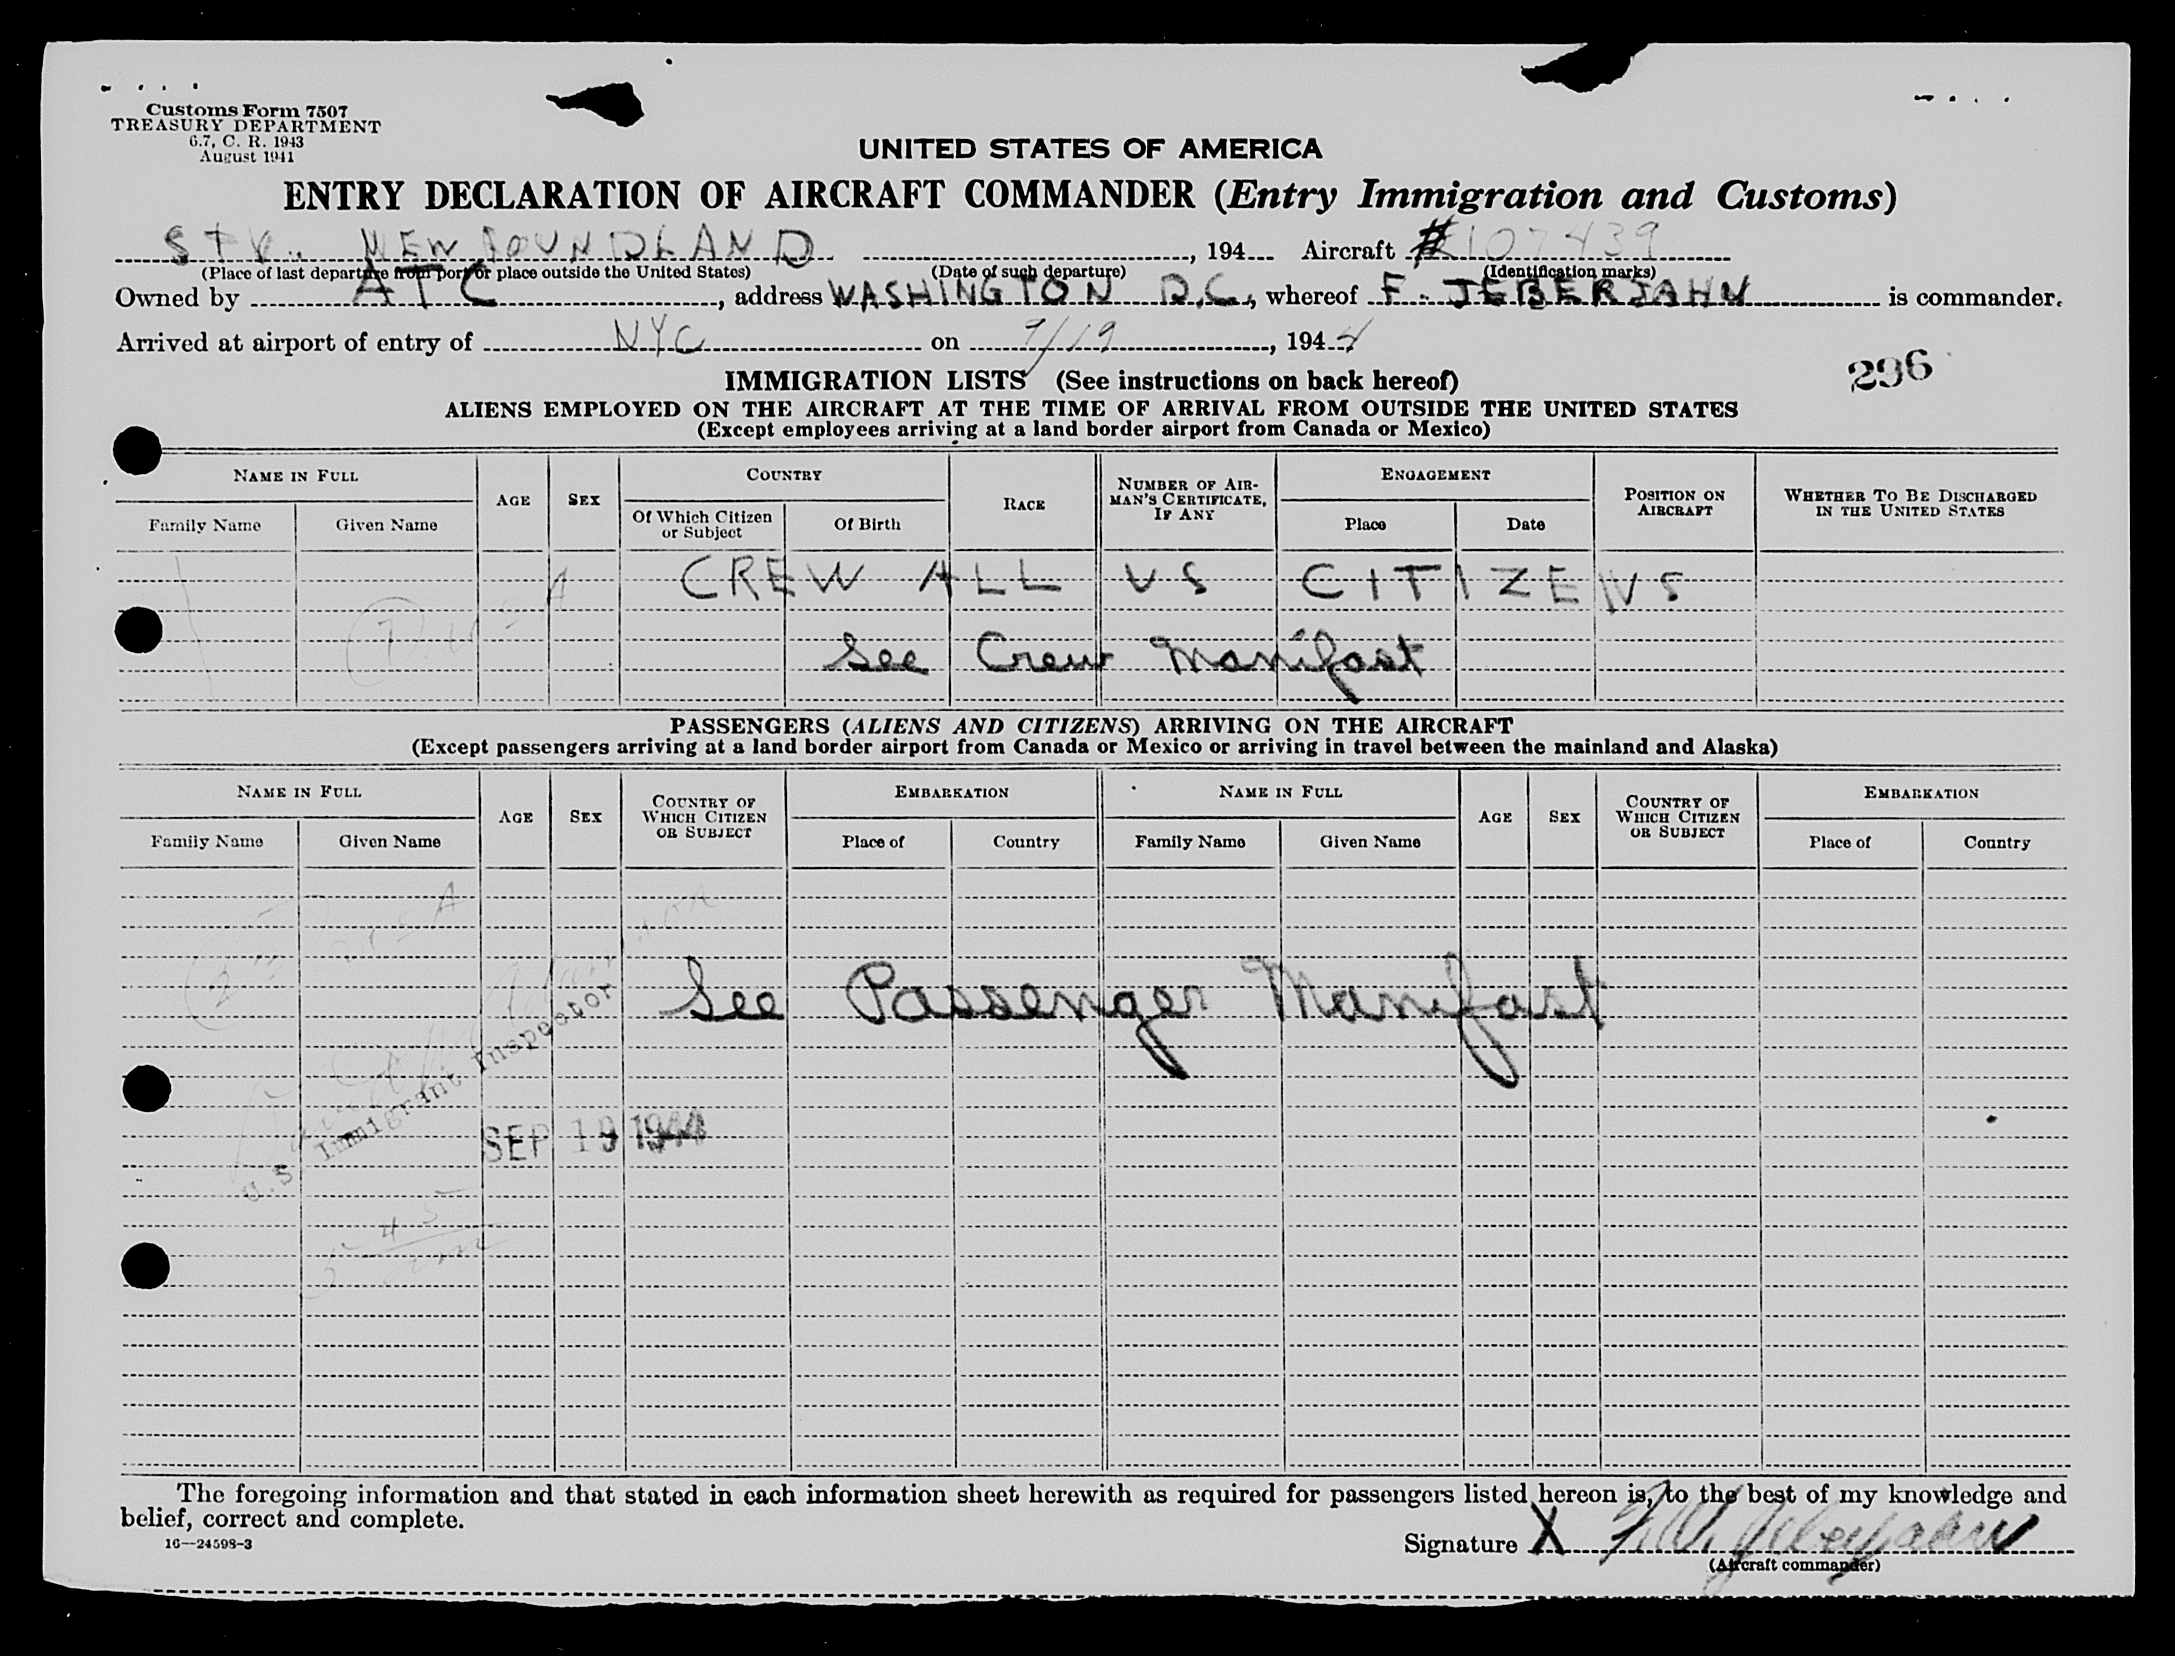 Customs Form 7507
TREASURY DEPARTMENT
6.7, C. R. 1943
August 1941
UNITED STATES OF AMERICA
ENTRY DECLARATION OF AIRCRAFT COMMANDER (Entry Immigration and Customs)
NEWFOUNDLAND , 194 Aircraft # 107439
(Place of last departure from port or place outside the United States) (Date of such departure) (Identification marks)
Owned by ATC , address WASHINGTON D.C., whereof F. JEBERJAHN is commander.
Arrived at airport of entry of NYC on 9/19, 1944
296
IMMIGRATION LISTS (See instructions on back hereof)
ALIENS EMPLOYED ON THE AIRCRAFT AT THE TIME OF ARRIVAL FROM OUTSIDE THE UNITED STATES
(Except employees arriving at a land border airport from Canada or Mexico)
NAME IN FULL AGE SEX COUNTRY RACE NUMBER OF AIRMAN'S CERTIFICATE, IF ANY ENGAGEMENT POSITION ON AIRCRAFT WHETHER TO BE DISCHARGED IN THE UNITED STATES
Family Name Given Name Of Which Citizen or Subject Of Birth Place Date
CREW ALL US CITIZENS
(7) USA
See Crew Manifast
PASSENGERS (ALIENS AND CITIZENS) ARRIVING ON THE AIRCRAFT
(Except passengers arriving at a land border airport from Canada or Mexico or arriving in travel between the mainland and Alaska)
NAME IN FULL AGE SEX COUNTRY OF WHICH CITIZEN OR SUBJECT EMBARKATION NAME IN FULL AGE SEX COUNTRY OF WHICH CITIZEN OR SUBJECT EMBARKATION
Family Name Given Name Place of Country Family Name Given Name Place of Country
USA
See Passenger Manifast
U.S. Immigrant Inspector
SEP 19 1944
The foregoing information and that stated in each information sheet herewith as required for passengers listed hereon is, to the best of my knowledge and
belief, correct and complete.
16—24598-3
Signature X
(Aircraft commander)